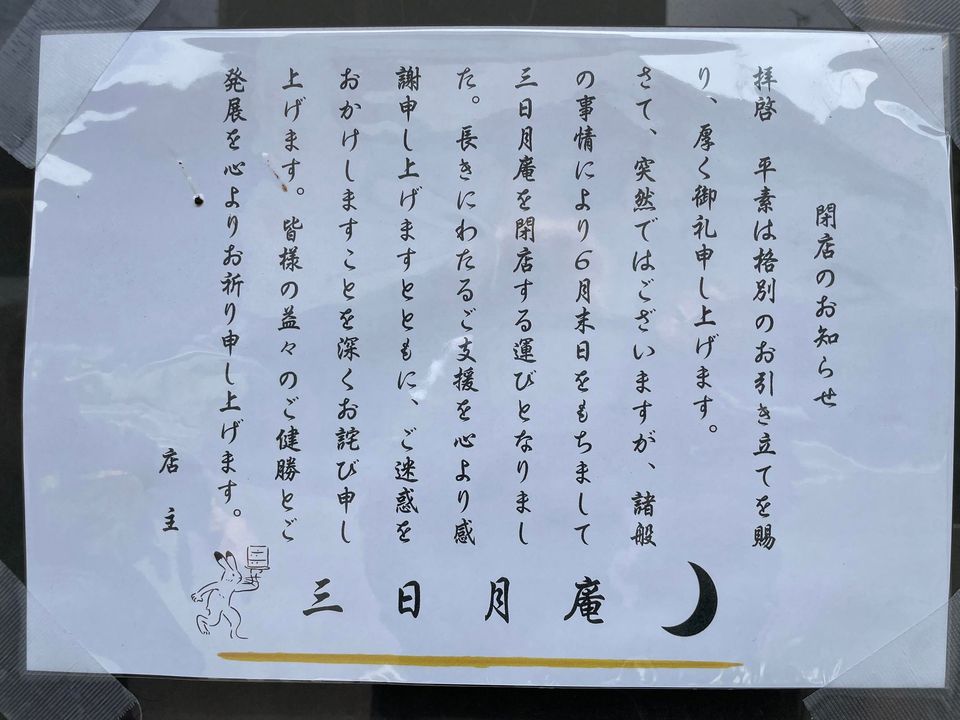 閉店のお知らせ
拝啓　平素は格別のお引き立てを賜
り、厚く御礼申し上げます。
さて、突然ではございますが、諸般
の事情により6月末日をもちまして
三日月庵を閉店する運びとなりまし
た。長きにわたるご支援を心より感
謝申し上げますとともに、ご迷惑を
おかけしますことを深くお詫び申し
上げます。皆様の益々のご健勝とご
発展を心よりお祈り申し上げます。
店主
三日月庵